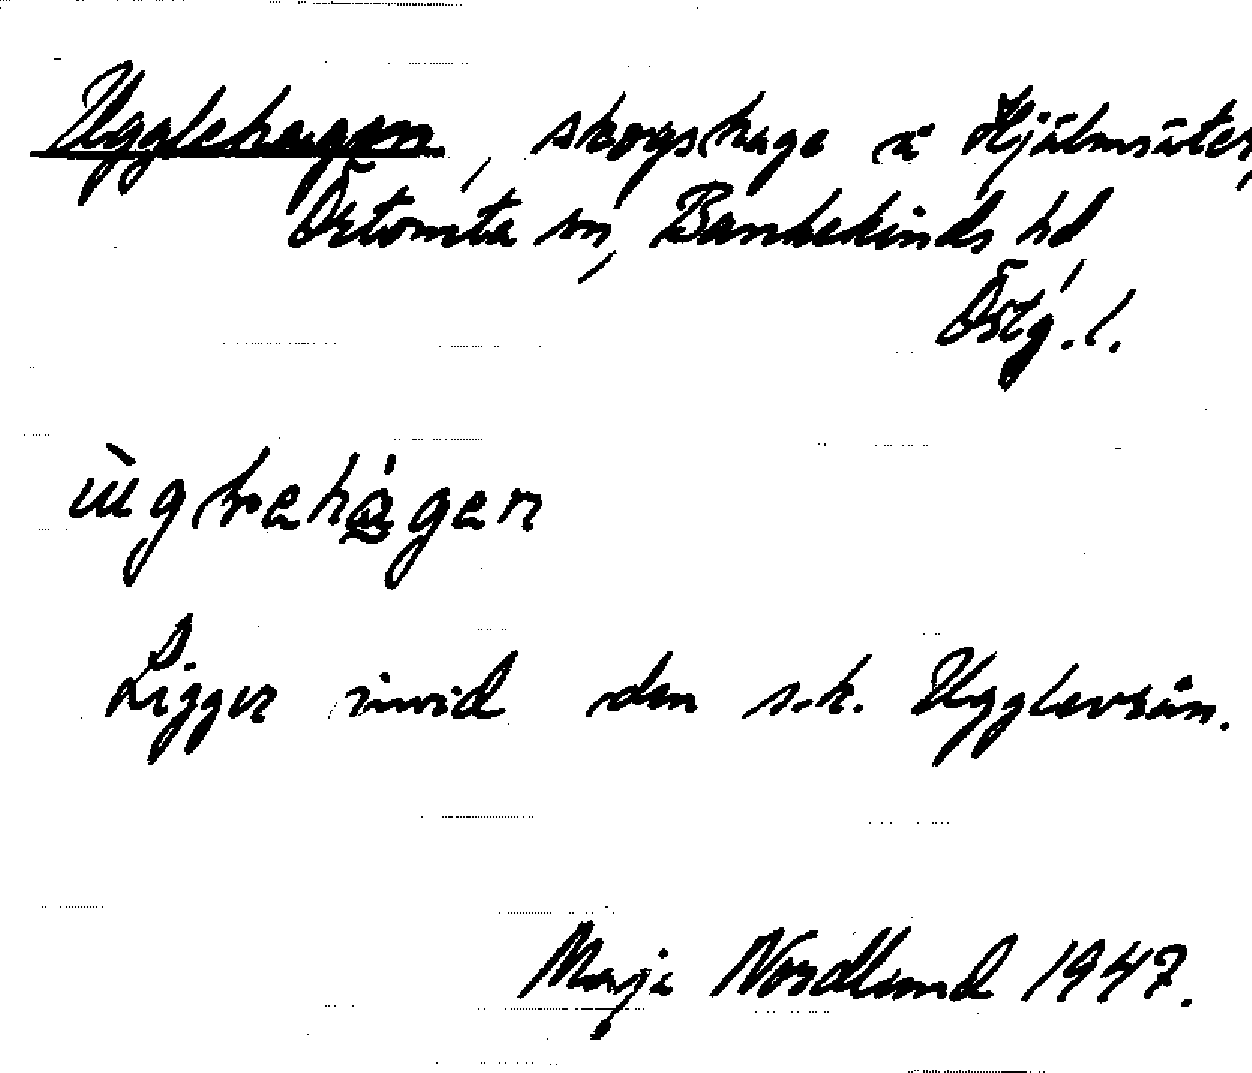 Ugglehagen, skogshage i Hjälmsäter,
Örtomta sn, Bankekinds hd
Östg. l.
Ligger invid den s.k. Ugglevrån.
Maja Nordlund 1947.